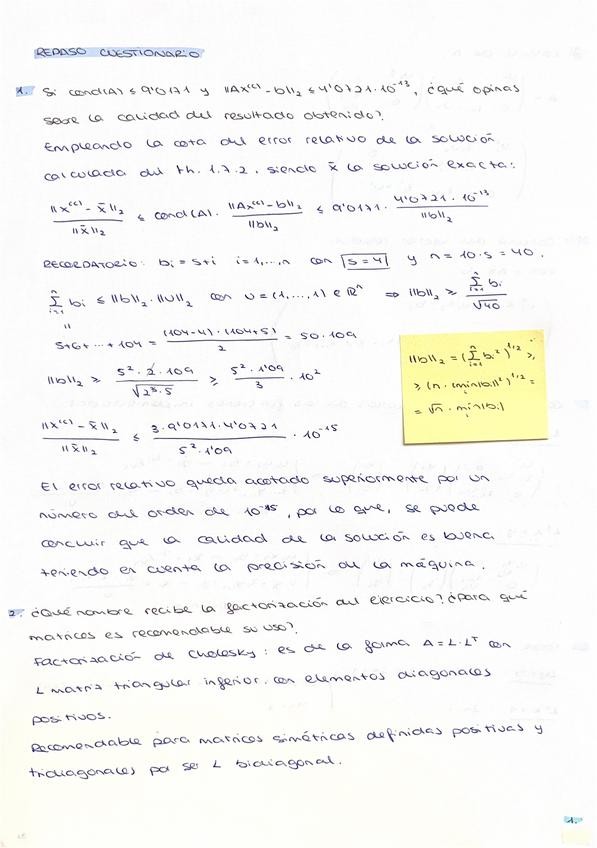 REPASO CUESTIONARIO
1. Si cond(A) ≤ 9'0171 y ||Ax⁽ᶜ⁾ - b||₂ ≤ 4'0721·10⁻¹³, ¿qué opinas
sobre la calidad del resultado obtenido?
Empleando la cota del error relativo de la solución
calculada del th. 1.7.2, siendo x̄ la solución exacta:
||x⁽ᶜ⁾ - x̄||₂ / ||x̄||₂ ≤ cond(A) · ||Ax⁽ᶜ⁾ - b||₂ / ||b||₂ ≤ 9'0171 · 4'0721·10⁻¹³ / ||b||₂
RECORDATORIO: bᵢ = s+i i=1,...,n con s=4 y n=10·s=40.
∑ᵢ₌₁ⁿ bᵢ ≤ ||b||₂·||U||₂ con U=(1,...,1) ∈ ℝⁿ ⇒ ||b||₂ ≥ ∑ᵢ₌₁ⁿ bᵢ / √40
||
5+6+...+104 = (104-4)·(104+5) / 2 = 50·109
||b||₂ ≥ 5²·2·109 / √(2³·5) ≥ 5²·1'09 / 3 · 10²
||b||₂ = (∑ᵢ₌₁ⁿ bᵢ²)^1/2 ≥
≥ (n·(min|bᵢ|)²)^1/2 =
= √n · min|bᵢ|
||x⁽ᶜ⁾ - x̄||₂ / ||x̄||₂ ≤ 3·9'0171·4'0721 / 5²·1'09 · 10⁻¹⁵
El error relativo queda acotado superiormente por un
número del orden de 10⁻¹⁵, por lo que, se puede
concluir que la calidad de la solución es buena
teniendo en cuenta la precisión de la máquina.
2. ¿Qué nombre recibe la factorización del ejercicio? ¿Para qué
matrices es recomendable su uso?
Factorización de Cholesky: es de la forma A=L·Lᵀ con
L matriz triangular inferior, con elementos diagonales
positivos.
Recomendable para matrices simétricas definidas positivas y
tridiagonales por ser L bidiagonal.
1.